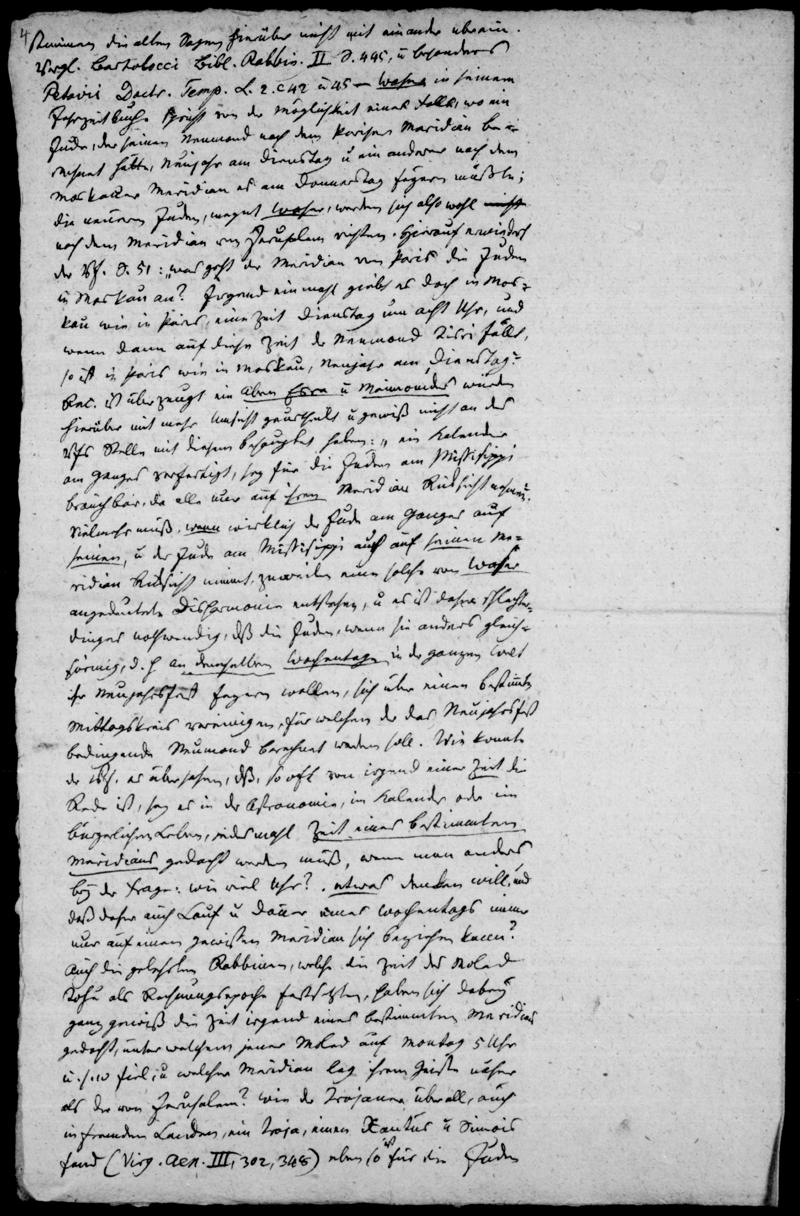 4
stimmen die alten Sagen hierüber nicht mit einander überein.
Vergl. Bartolocci Bibl. Rabbin. II S. 495, u besonders
Petavii Doctr. Temp. L. 2. C 42 u 45 — in seinem
spricht von der Möglichkeit eines Falls, wo ein
Jude, der seinen Neumond nach dem Pariser Meridian be=
rechnet hätte, Neujahr am Dienstag u ein anderer nach dem
Moskauer Meridian es am Donnerstag feyern müßte;
die neueren Juden, meynt, werden sich also wohl nicht
nach dem Meridian von Jerusalem richten. Hierauf erwiedert
der Vf. S. 51: „was geht der Meridian von Paris die Juden
in Moskau an? Irgend einmahl giebt es doch in Mos=
kau wie in Paris, eine Zeit Dienstag um acht Uhr, und
wenn dann auf diese Zeit der Neumond Tisri fällt,
so ist in Paris wie in Moskau, Neujahr am Dienstag.“
Rec. ist überzeugt ein Aben Esra u Maimonides würden
hierüber mit mehr Umsicht geurtheilt u gewiß nicht an des
Vfs Stelle mit diesem behauptet haben: „ein Kalender
am Ganges verfertigt, sey für die Juden am Missisippi
brauchbar, da alle nur auf ihren Meridian Rücksicht nehmen.
Vielmehr muß, wenn wirklich der Jude am Ganges auf
seinen, u der Jude am Missisippi auch auf seinen Me=
ridian Rücksicht nimmt, zuweilen eine solche von
angedeutete Disharmonie entstehen, u es ist daher schlechter=
dinges nothwendig, daß die Juden, wenn sie anders gleich=
förmig, d. h. an demselben Wochentage in der ganzen Welt
ihr Neujahrsfest feyern wollen, sich über einen bestimmten
Mittagskreis vereinigen, für welchen der das Neujahrsfest
bedingende Neumond berechnet werden soll. Wie konnte
der Vf. es übersehen, daß, so oft von irgend einer Zeit die
Rede ist, sey es in der Astronomie, im Kalender oder im
bürgerlichen Leben, jedesmahl Zeit eines bestimmten
Meridians gedacht werden muß, wenn man anders
bey der Frage: wie viel Uhr?. etwas denken will, und
daß daher auch Lauf u Dauer eines Wochentags immer
nur auf einen gewissen Meridian sich beziehen kann?
Auch die gelehrten Rabbinen, welche die Zeit des Molad
Tohu als Rechnungsepoche festsetzten, haben sich dabey
ganz gewiß die Zeit irgend eines bestimmten Meridians
gedacht, unter welchem jener Molad auf Montag 5 Uhr
u. s. w fiel; u welcher Meridian lag ihrem Geiste näher
als der von Jerusalem? Wie der Trojaner überall, auch
in fremden Landen, ein Troja, einen Xantus u Simois
fand (Virg. Aen. III, 302, 348) eben so ist für die Juden